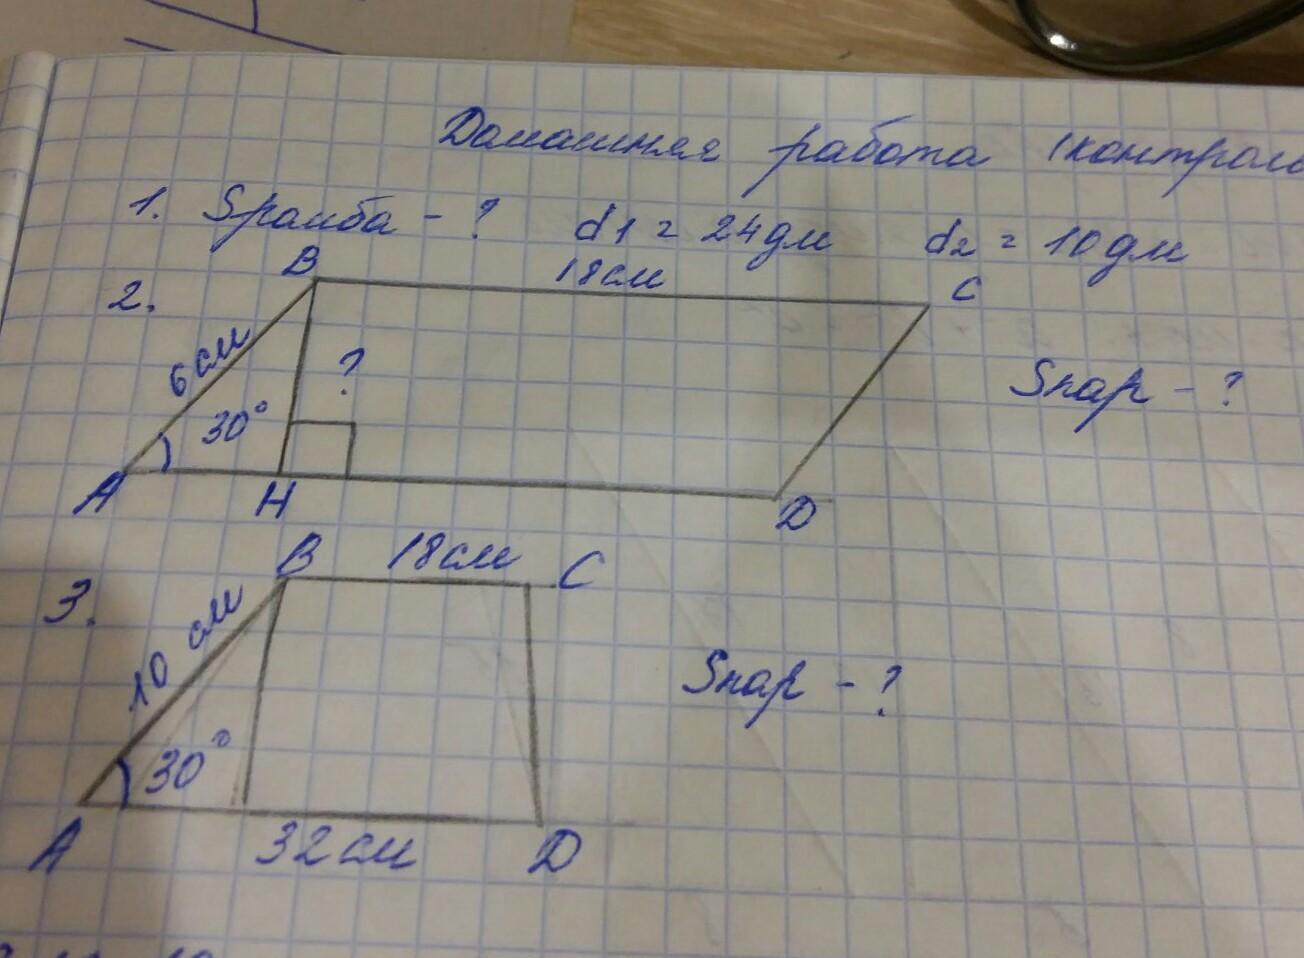 Домашняя работа (контроль
1. Sромба - ? d1 = 24дм d2 = 10дм
2.
B 18см C
6см
?
30°
Sпар - ?
A H D
3.
B 18см C
10 см
30°
Sпар - ?
A 32см D